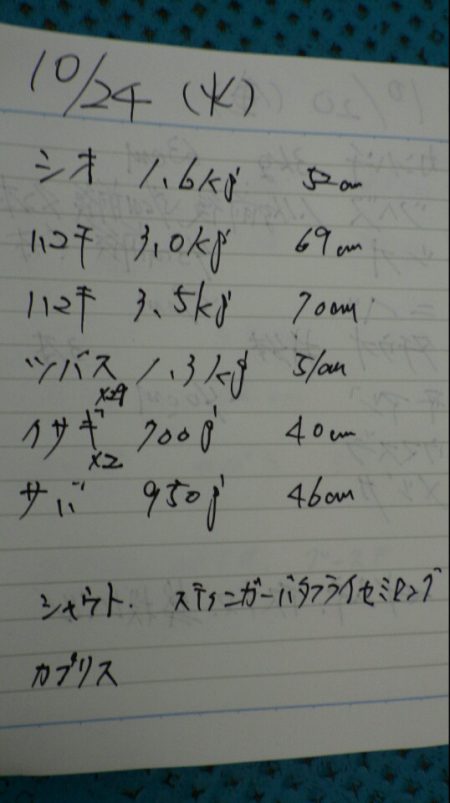 10/24 (火)
シオ 1.6kg 52cm
ハマチ 3.0kg 69cm
ハマチ 3.5kg 70cm
ツバス 1.3kg 51cm
x29
イサギ 700g 40cm
x2
サバ 950g 46cm
シャウト. スティンガーバタフライセミロング
カブリス